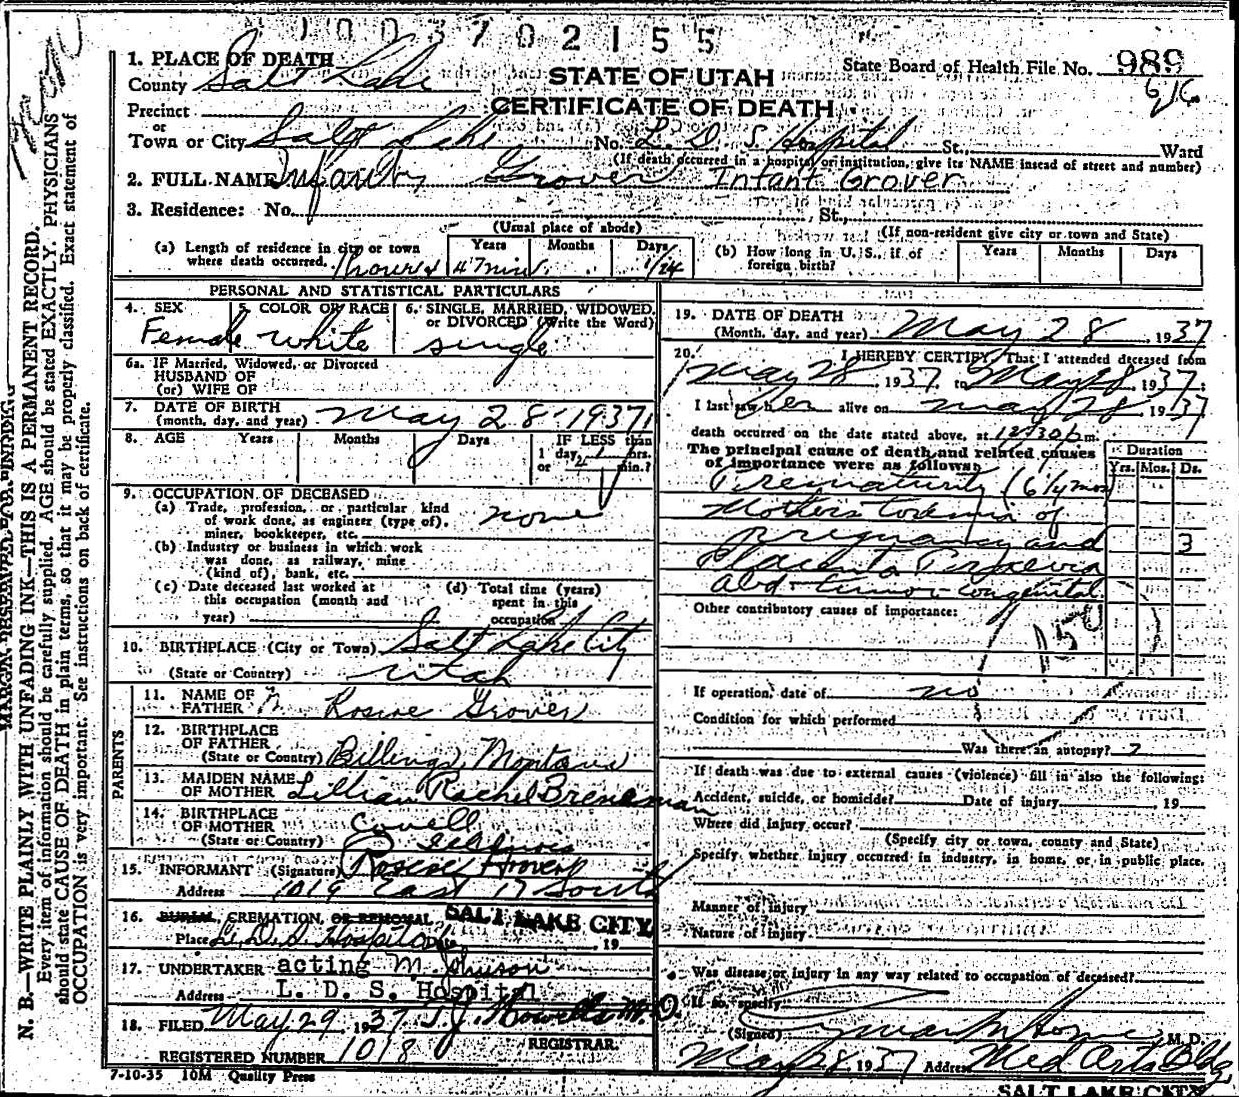 1003702155
1. PLACE OF DEATH
County Salt Lake
STATE OF UTAH
CERTIFICATE OF DEATH
State Board of Health File No. 989
6/16
Precinct
or
Town or City Salt Lake No. L. D. S. Hospital St., Ward
(If death occurred in a hospital or institution, give its NAME instead of street and number)
2. FULL NAME Infant Grover Infant Grover
3. Residence: No. , St.,
(Usual place of abode) (If non-resident give city or town and State)
(a) Length of residence in city or town where death occurred. Years Months Days
47 min 1/24
(b) How long in U. S., if of foreign birth? Years Months Days
PERSONAL AND STATISTICAL PARTICULARS
4. SEX 5. COLOR OR RACE 6. SINGLE, MARRIED, WIDOWED, or DIVORCED (Write the Word)
Female white single
6a. IF Married, Widowed, or Divorced
HUSBAND OF
(or) WIFE OF
7. DATE OF BIRTH
(month, day, and year) May 28 1937
8. AGE Years Months Days IF LESS than
1 day, hrs.
or min.?
9. OCCUPATION OF DECEASED
(a) Trade, profession, or particular kind
of work done, as engineer (type of),
miner, bookkeeper, etc. none
(b) Industry or business in which work
was done, as railway, mine
(kind of), bank, etc.
(c) Date deceased last worked at
this occupation (month and
year)
(d) Total time (years)
spent in this
occupation
10. BIRTHPLACE (City or Town) Salt Lake City
(State or Country) Utah
PARENTS
11. NAME OF
FATHER M Roscoe Grover
12. BIRTHPLACE
OF FATHER
(State or Country) Billings, Montana
13. MAIDEN NAME
OF MOTHER Lillian Rachel Breneman
14. BIRTHPLACE
OF MOTHER Covell
(State or Country) Illinois
15. INFORMANT (Signature) Roscoe Grover
Address 1019 East 17 South
16. BURIAL, CREMATION, OR REMOVAL SALT LAKE CITY
Place L. D. S. Hospital Date , 19
17. UNDERTAKER acting M. Johnson
Address L. D. S. Hospital
18. FILED May 29 1937 Howells M. D.
REGISTRAR.
REGISTERED NUMBER 1018
7-10-35 10M Quality Press
19. DATE OF DEATH
(Month, day, and year) May 28, 1937
20. I HEREBY CERTIFY, That I attended deceased from
May 28, 1937, to May 28, 1937;
I last saw her alive on May 28, 1937
death occurred on the date stated above, at 12:30 p m.
The principal cause of death and related causes
of importance were as follows: Duration
Yrs. Mos. Ds.
Prematurity (6 1/4 mos)
Mothers toxemia of
pregnancy and 3
Placenta Praevia
Abd. tumor - congenital
Other contributory causes of importance:
If operation, date of no
Condition for which performed
Was there an autopsy?
If death was due to external causes (violence) fill in also the following:
Accident, suicide, or homicide? Date of injury , 19
Where did injury occur?
(Specify city or town, county and State)
Specify whether injury occurred in industry, in home, or in public place.
Manner of injury
Nature of injury
Was disease or injury in any way related to occupation of deceased?
If so, specify
(Signed) M. D.
May 28 1937 Address Med Arts Bldg.
SALT LAKE CITY
MARGIN RESERVED FOR BINDING
N. B.—WRITE PLAINLY WITH UNFADING INK—THIS IS A PERMANENT RECORD.
Every item of information should be carefully supplied. AGE should be stated EXACTLY. PHYSICIANS
should state CAUSE OF DEATH in plain terms, so that it may be properly classified. Exact statement of
OCCUPATION is very important. See instructions on back of certificate.